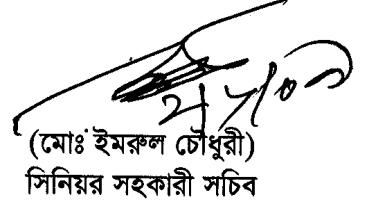 (মোঃ ইমরুল চৌধুরী)
সিনিয়র সহকারী সচিব